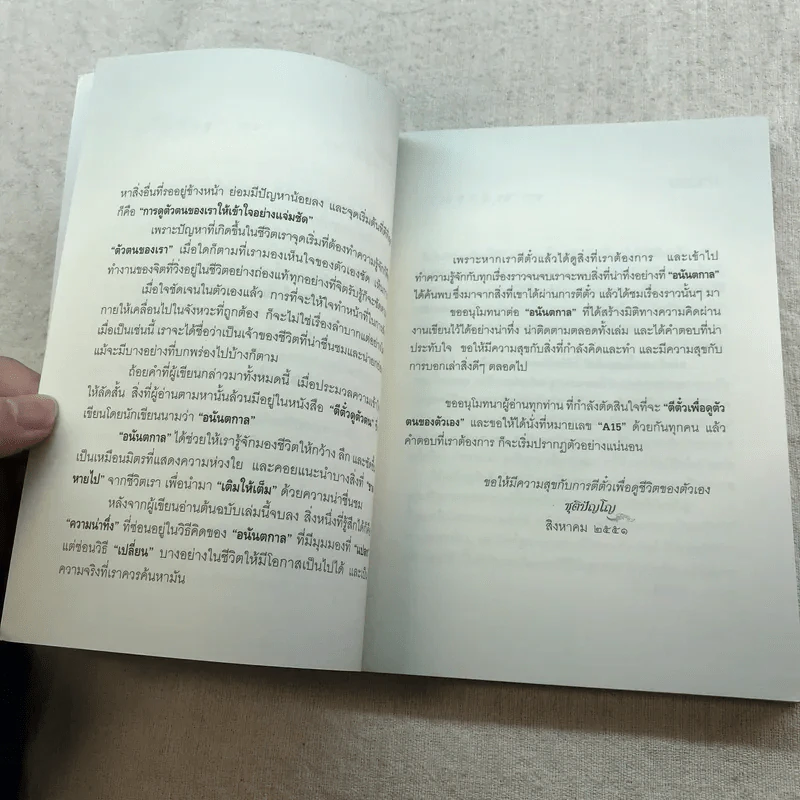 หาสิ่งอื่นที่รออยู่ข้างหน้า ย่อมมีปัญหาน้อยลง และจุดเริ่มต้นที่
ก็คือ “การดูตัวตนของเราให้เข้าใจอย่างแจ่มชัด”
เพราะปัญหาที่เกิดขึ้นในชีวิตเราจุดเริ่มที่ต้องทำความรู้จักก็
“ตัวตนของเรา” เมื่อใดก็ตามที่เรามองเห็นใจของตัวเองชัด
ทำงานของจิตที่วิ่งอยู่ในชีวิตอย่างถ่องแท้ทุกอย่างที่จิตรับรู้ก็จะ
เมื่อใจชัดเจนในตัวเองแล้ว การที่จะให้ใจทำหน้าที่ในการ
กายให้เคลื่อนไปในจังหวะที่ถูกต้อง ก็จะไม่ใช่เรื่องลำบากแต่อย่าง
เมื่อเป็นเช่นนี้ เราจะได้ชื่อว่าเป็นเจ้าของชีวิตที่น่าชื่นชมและ
แม้จะมีบางอย่างที่บกพร่องไปบ้างก็ตาม
ถ้อยคำที่ผู้เขียนกล่าวมาทั้งหมดนี้ เมื่อประมวลความ
ให้ลัดสั้น สิ่งที่ผู้อ่านตามหานั้นล้วนมีอยู่ในหนังสือ “ตีตั๋วดูตัวตน”
เขียนโดยนักเขียนนามว่า “อนันตกาล”
“อนันตกาล” ได้ช่วยให้เรารู้จักมองชีวิตให้กว้าง ลึก และ
เป็นเหมือนมิตรที่แสดงความห่วงใย และคอยแนะนำบางสิ่งที่
หายไป” จากชีวิตเรา เพื่อนำมา “เติมให้เต็ม” ด้วยความน่าชื่นชม
หลังจากผู้เขียนอ่านต้นฉบับเล่มนี้จบลง สิ่งหนึ่งที่รู้สึกได้
“ความน่าทึ่ง” ที่ซ่อนอยู่ในวิธีคิดของ “อนันตกาล” ที่มีมุมมองที่
แต่ซ่อนวิธี “เปลี่ยน” บางอย่างในชีวิตให้มีโอกาสเป็นไปได้ และ
ความจริงที่เราควรค้นหามัน
เพราะหากเราตีตั๋วแล้วได้ดูสิ่งที่เราต้องการ และเข้าไป
ทำความรู้จักกับทุกเรื่องราวจนจบเราจะพบสิ่งที่น่าทึ่งอย่างที่ “อนันตกาล”
ได้ค้นพบ ซึ่งมาจากสิ่งที่เขาได้ผ่านการตีตั๋ว แล้วได้ชมเรื่องราวนั้นๆ มา
ขออนุโมทนาต่อ “อนันตกาล” ที่ได้สร้างมิติทางความคิดผ่าน
งานเขียนไว้ได้อย่างน่าทึ่ง น่าติดตามตลอดทั้งเล่ม และได้คำตอบที่น่า
ประทับใจ ขอให้มีความสุขกับสิ่งที่กำลังคิดและทำ และมีความสุขกับ
การบอกเล่าสิ่งดีๆ ตลอดไป
ขออนุโมทนาผู้อ่านทุกท่าน ที่กำลังตัดสินใจที่จะ “ตีตั๋วเพื่อดูตัว
ตนของตัวเอง” และขอให้ได้นั่งที่หมายเลข “A15” ด้วยกันทุกคน แล้ว
คำตอบที่เราต้องการ ก็จะเริ่มปรากฏตัวอย่างแน่นอน
ขอให้มีความสุขกับการตีตั๋วเพื่อดูชีวิตของตัวเอง
ชุติปัญโญ
สิงหาคม ๒๕๕๑